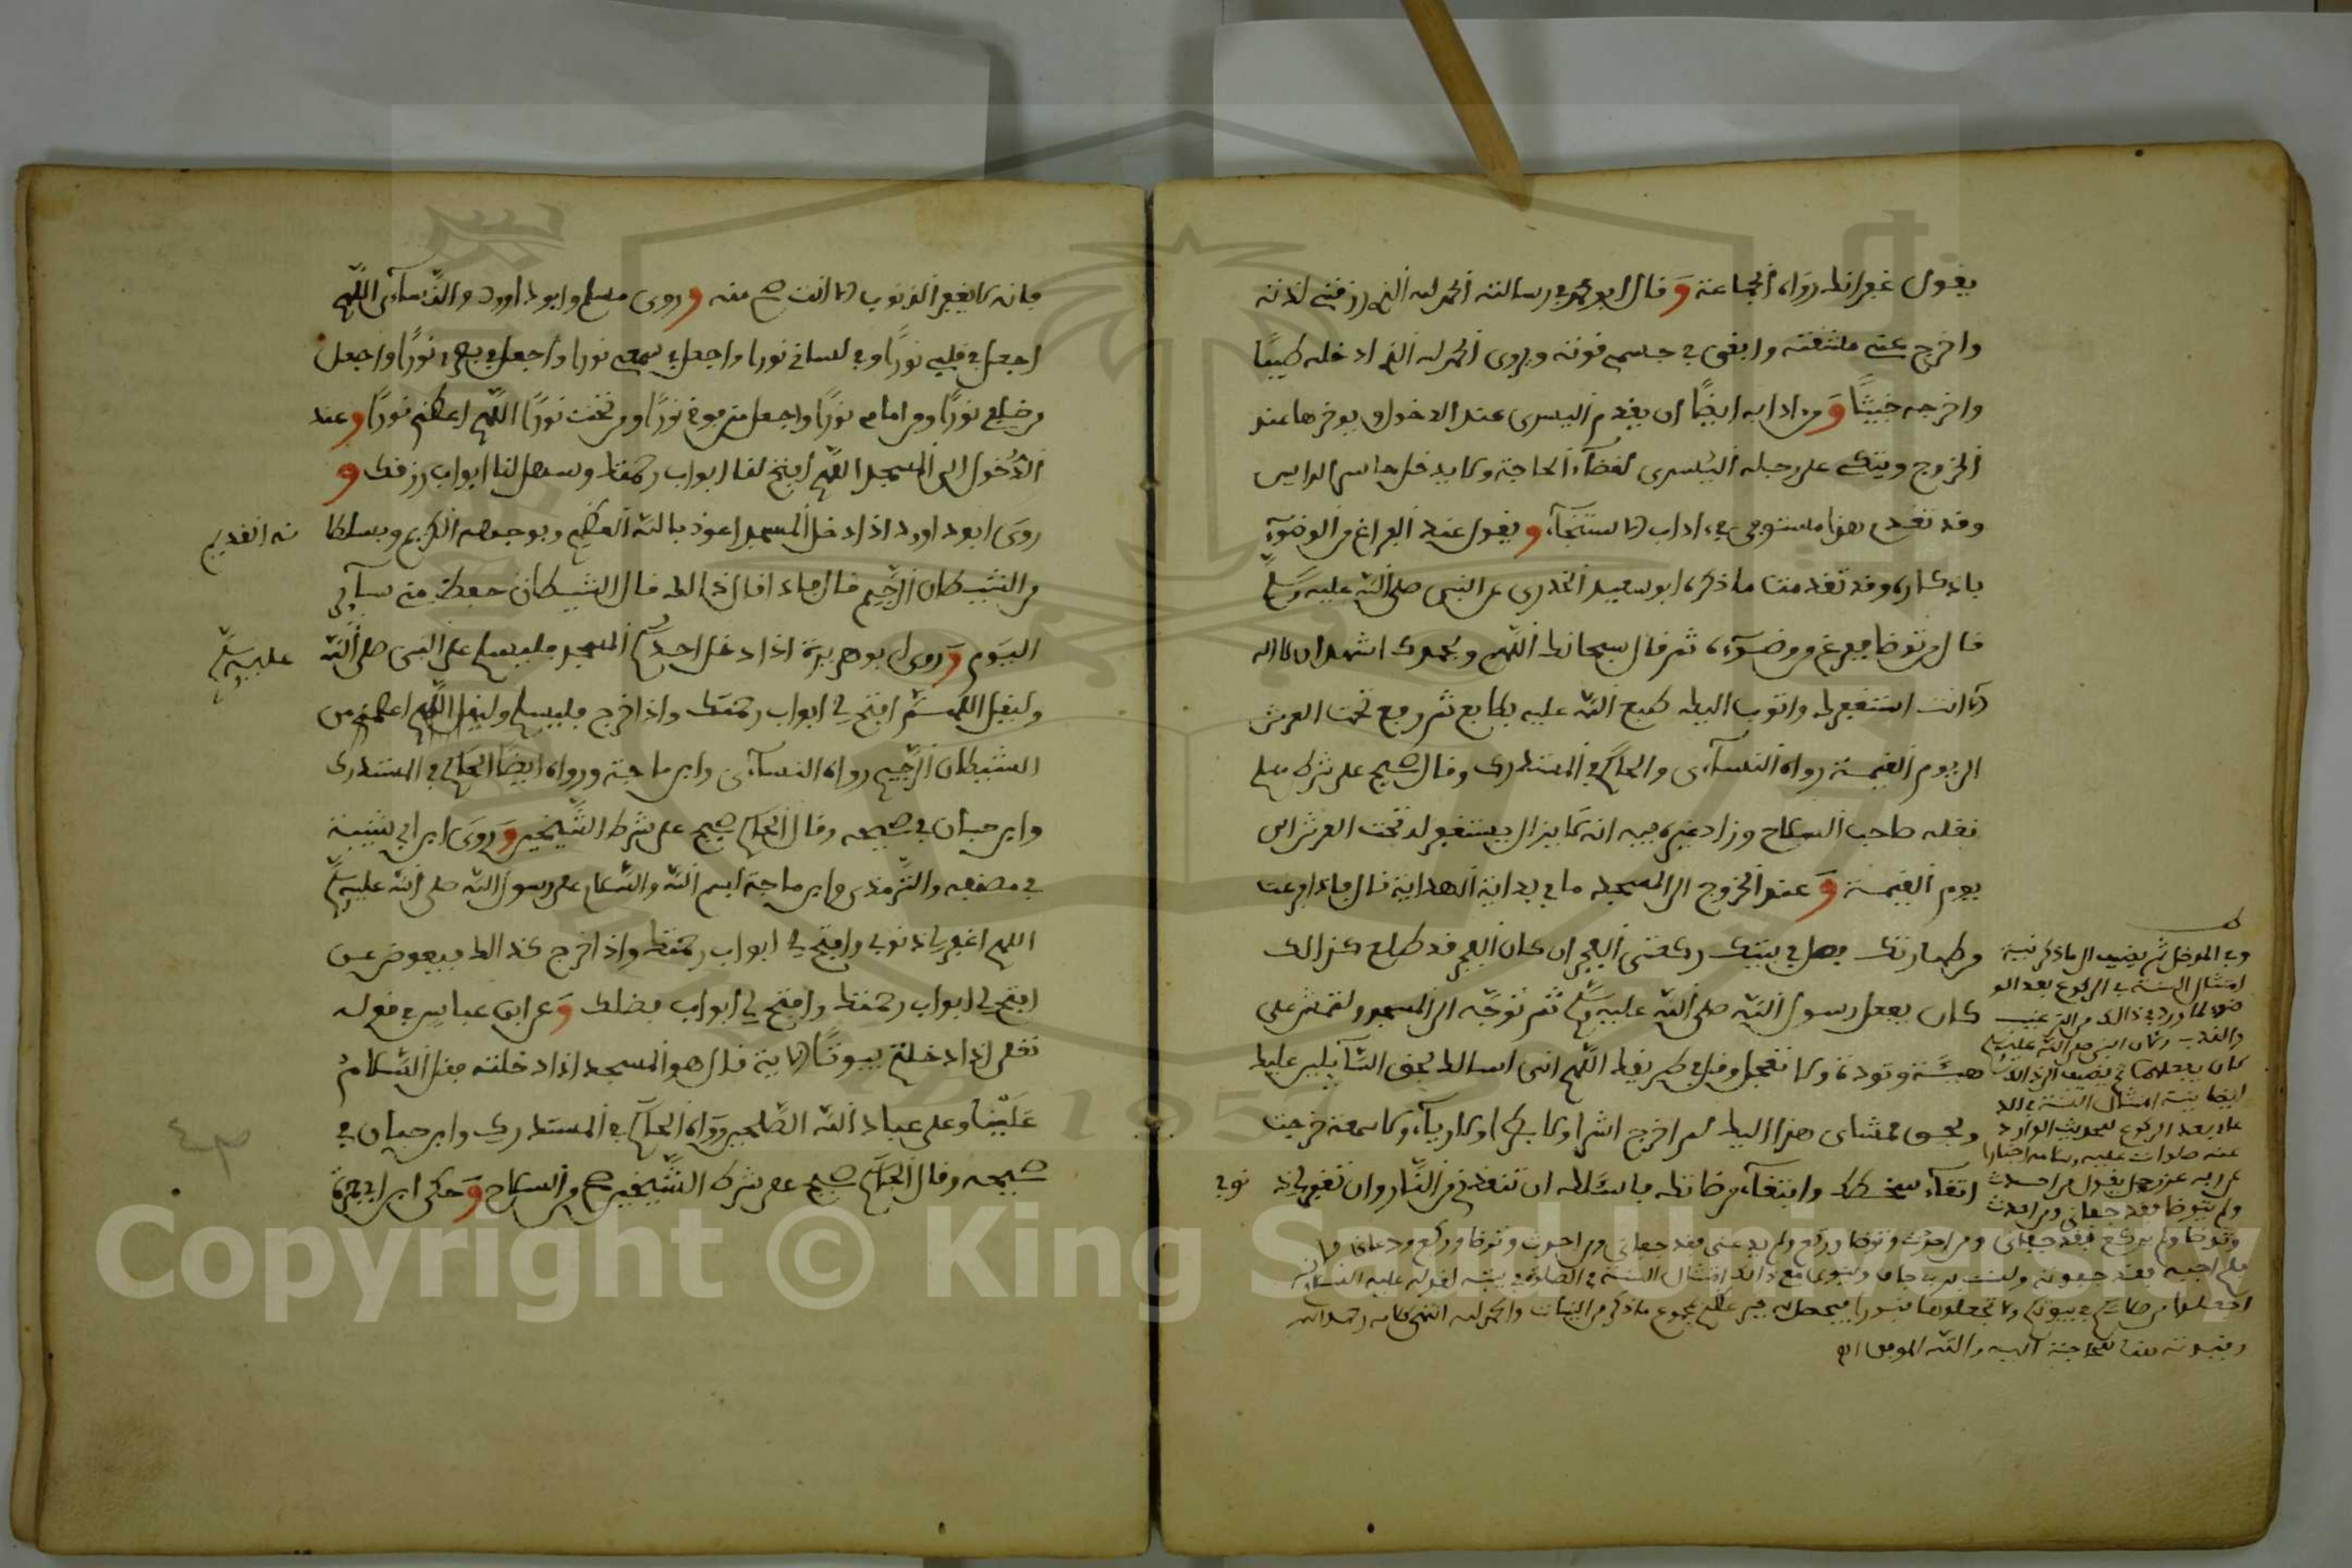 يقول غفرانك رواه الجماعة وقال ابو محمد في رسالته الحمد لله الذي رزقني لذته
واخرج عني مشقته وابقى في جسمي قوته ويروى الحمد لله الذي ادخله طيبا
واخرجه خبيثا ومن ادابه ايضا ان يقدم اليسرى عند الدخول ويوخرها عند
الخروج ويتكئ على رجله اليسرى لقضاء الحاجة ولا يدخلها حاسر الراس
وقد تقدم هذا مستوفى في ءاداب الاستنجاء ويقول عند الفراغ من الوضوء
باذكاره وقد تقدمت ما ذكره ابو سعيد الخدري عن النبي صلى الله عليه وسلم
قال من توضا ففرغ من وضوءه ثم قال سبحانك اللهم وبحمدك اشهد ان لا اله
الا انت استغفرك واتوب اليك طبع الله عليه بطابع ثم رفع تحت العرش
الى يوم القيمة رواه النسائي والحاكم في المستدرك وقال صحيح على شرط مسلم
نقله صاحب السلاح وزاد غيره فيه انه لا يزال يستغفر له تحت العرش الى
يوم القيمة وعند الخروج الى المسجد ما في بداية الهداية قال فاذا فرغت
من طهارتك فصل في بيتك ركعتي الفجر ان كان الفجر قد طلع كذلك
كان يفعل رسول الله صلى الله عليه وسلم ثم توجه الى المسجد ولتمش على
هينة وتودة ولا تعجل وقل في طريقك اللهم اني اسالك بحق السائلين عليك
وبحق ممشاي هذا اليك لم اخرج اشرا ولا بطرا ولا رياء ولا سمعة خرجت
اتقاء سخطك وابتغاء مرضاتك فاسئلك ان تنقذني من النار وان تغفر لي ذنوبي
وفي المدخل ثم يضيف الى ما ذكر نية
امتثال السنة في الركوع بعد الو
ضوء لما ورد في ذالك من الترغيب
كان يفعلهما ثم يضيف الى ذالك
ايضا نية امتثال السنة في الد
عاء بعد الركوع للحديث الوارد
عنه صلوات عليه وسلامه اخبارا
عن ربه عز وجل يقول من احدث
ولم يتوضا فقد جفاني ومن احدث
وتوضا ولم يركع فقد جفاني ومن احدث وتوضا وركع ولم يدعني فقد جفاني ومن احدث وتوضا وركع ودعاني
فلم اجبه فقد جفوته ولست برب جاف وينوي مع ذالك امتثال السنة في الصلاة في بيته لقوله عليه السلام
اجعلوا من صلاتكم في بيوتكم ولا تجعلوها قبورا فيحصل له خير عظيم بمجموع ما ذكر من النيات والحمد لله انتهى كلامه رحمه الله
والله الموفق
فانه لا يغفر الذنوب الا انت صح منه وروى مسلم وابو داوود والنساءي اللهم
اجعل في قلبي نورا وفي لساني نورا واجعل في سمعي نورا واجعل في بصري نورا واجعل
من خلفي نورا ومن امامي نورا واجعل من فوقي نورا ومن تحتي نورا اللهم اعطني نورا وعند
الدخول الى المسجد اللهم افتح لنا ابواب رحمتك وسهل لنا ابواب رزقك و
روى ابو داوود اذا دخل المسجد اعوذ بالله العظيم وبوجهه الكريم وبسلطا نه القديم
من الشيطان الرجيم قال فاذا قال ذالك قال الشيطان حفظ مني سائر
اليوم وروى ابو هريرة اذا دخل احدكم المسجد فليسلم على النبي صلى الله عليه وسلم
وليقل اللهم افتح لي ابواب رحمتك واذا خرج فليسلم وليقل اللهم اعصمني من
الشيطان الرجيم رواه النسآئي وابن ماجة ورواه ايضا الحاكم في المستدرك
وابن حبان في صحيحه وقال الحاكم صحيح على شرط الشيخين وروى ابن ابي شيبة
في مصنفه والترمذي وابن ماجة بسم الله والسلام على رسول الله صلى الله عليه وسلم
اللهم اغفر لي ذنوبي وافتح لي ابواب رحمتك واذا خرج كذالك فيعوض عن
افتح لي ابواب رحمتك وافتح لي ابواب فضلك وعن ابن عباس في قوله
تعلى اذا دخلتم بيوتا الاية قال هو المسجد اذا دخلته فقل السلام
علينا وعلى عباد الله الصلحين رواه الحاكم في المستدرك وابن حبان في
صحيحه وقال الحاكم صحيح على شرط الشيخين صح من السلاح وحكى ابن ابي جمرة
Copyright © King Saud University
1957